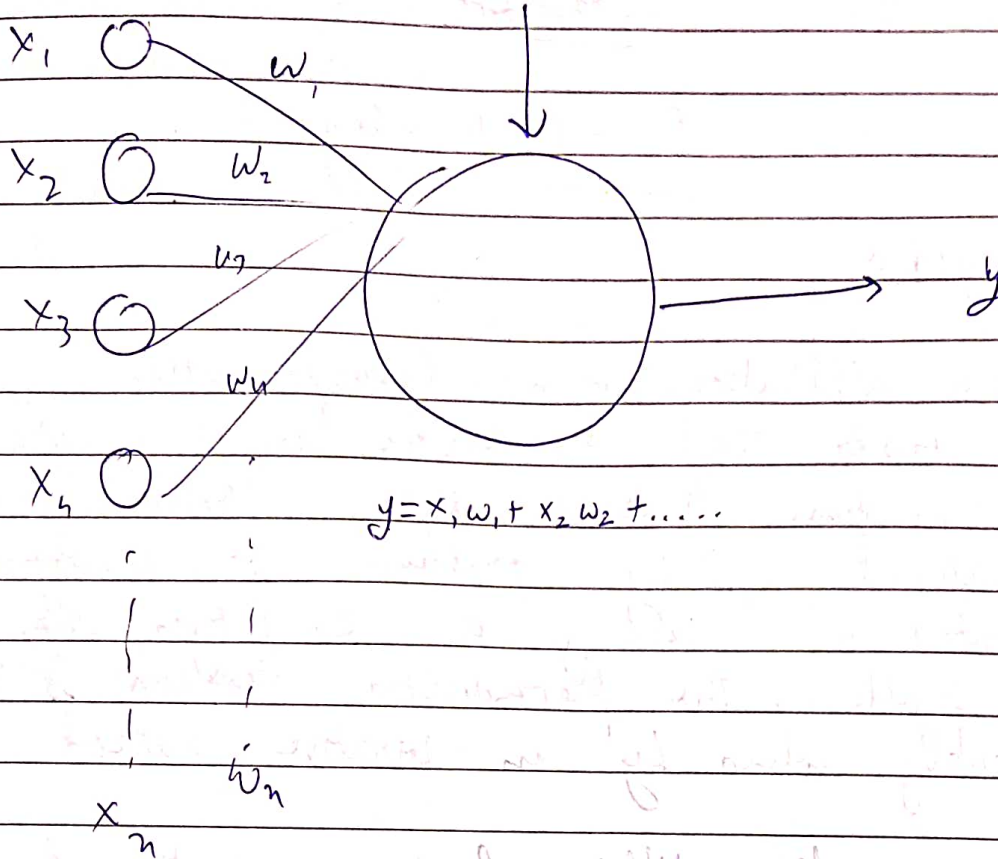 x₁
w₁
x₂
w₂
w₃
x₃
y
w₄
x₄
y = x₁w₁ + x₂w₂ + .....
wₙ
xₙ